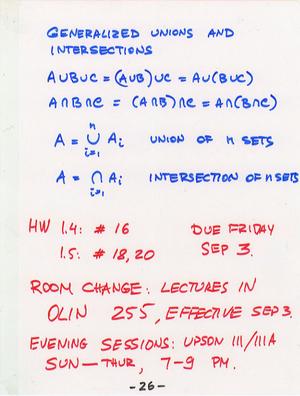 GENERALIZED UNIONS AND
INTERSECTIONS
A∪B∪C = (A∪B)∪C = A∪(B∪C)
A∩B∩C = (A∩B)∩C = A∩(B∩C)
n
A = ∪ Ai UNION OF n SETS
i=1
A = ∩ Ai INTERSECTION OF n SETS
i=1
HW 1.4: # 16 DUE FRIDAY
1.5: # 18,20 SEP 3.
ROOM CHANGE: LECTURES IN
OLIN 255, EFFECTIVE SEP 3.
EVENING SESSIONS: UPSON 111/111A
SUN—THUR, 7-9 PM.
-26-